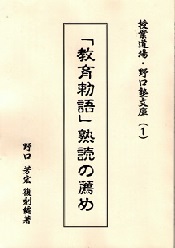 授業道場・野口塾文庫(1)
「教育勅語」熟読の薦め
野口 芳宏 復刻編著